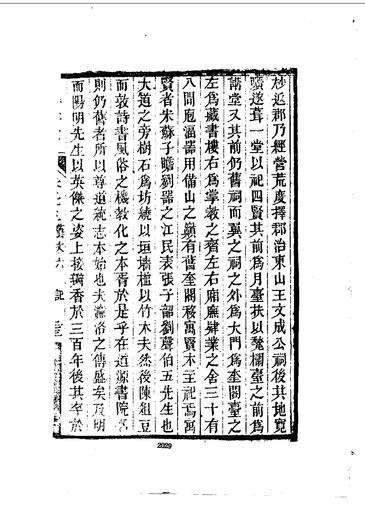 杪返郡乃經營荒度擇郡治東山王文成公祠後其地寬
曠遂葺一堂以祀四賢其前為月臺扶以欄臺之前為
講堂又其前仍舊祠而翼之祠之外為大門為奎閣臺之
左為藏書樓右為掌教之齋左右廂廡肄業之舍三十有
八間庖湢器用備山之巔有舊奎閣移寓賢木主祀焉寓
賢者宋蘇子瞻劉器之江民表張子韶劉聲伯五先生也
大道之旁樹石為坊繞以垣墻檻以竹木夫然後陳俎豆
而敦詩書風俗之機教化之本胥於是乎在道源書院名
則仍舊者所以尊道統志本始也夫濂洛之傳盛矣及明
而陽明先生以英傑之姿上接瓣香於三百年後其率於
卷之
記
2029